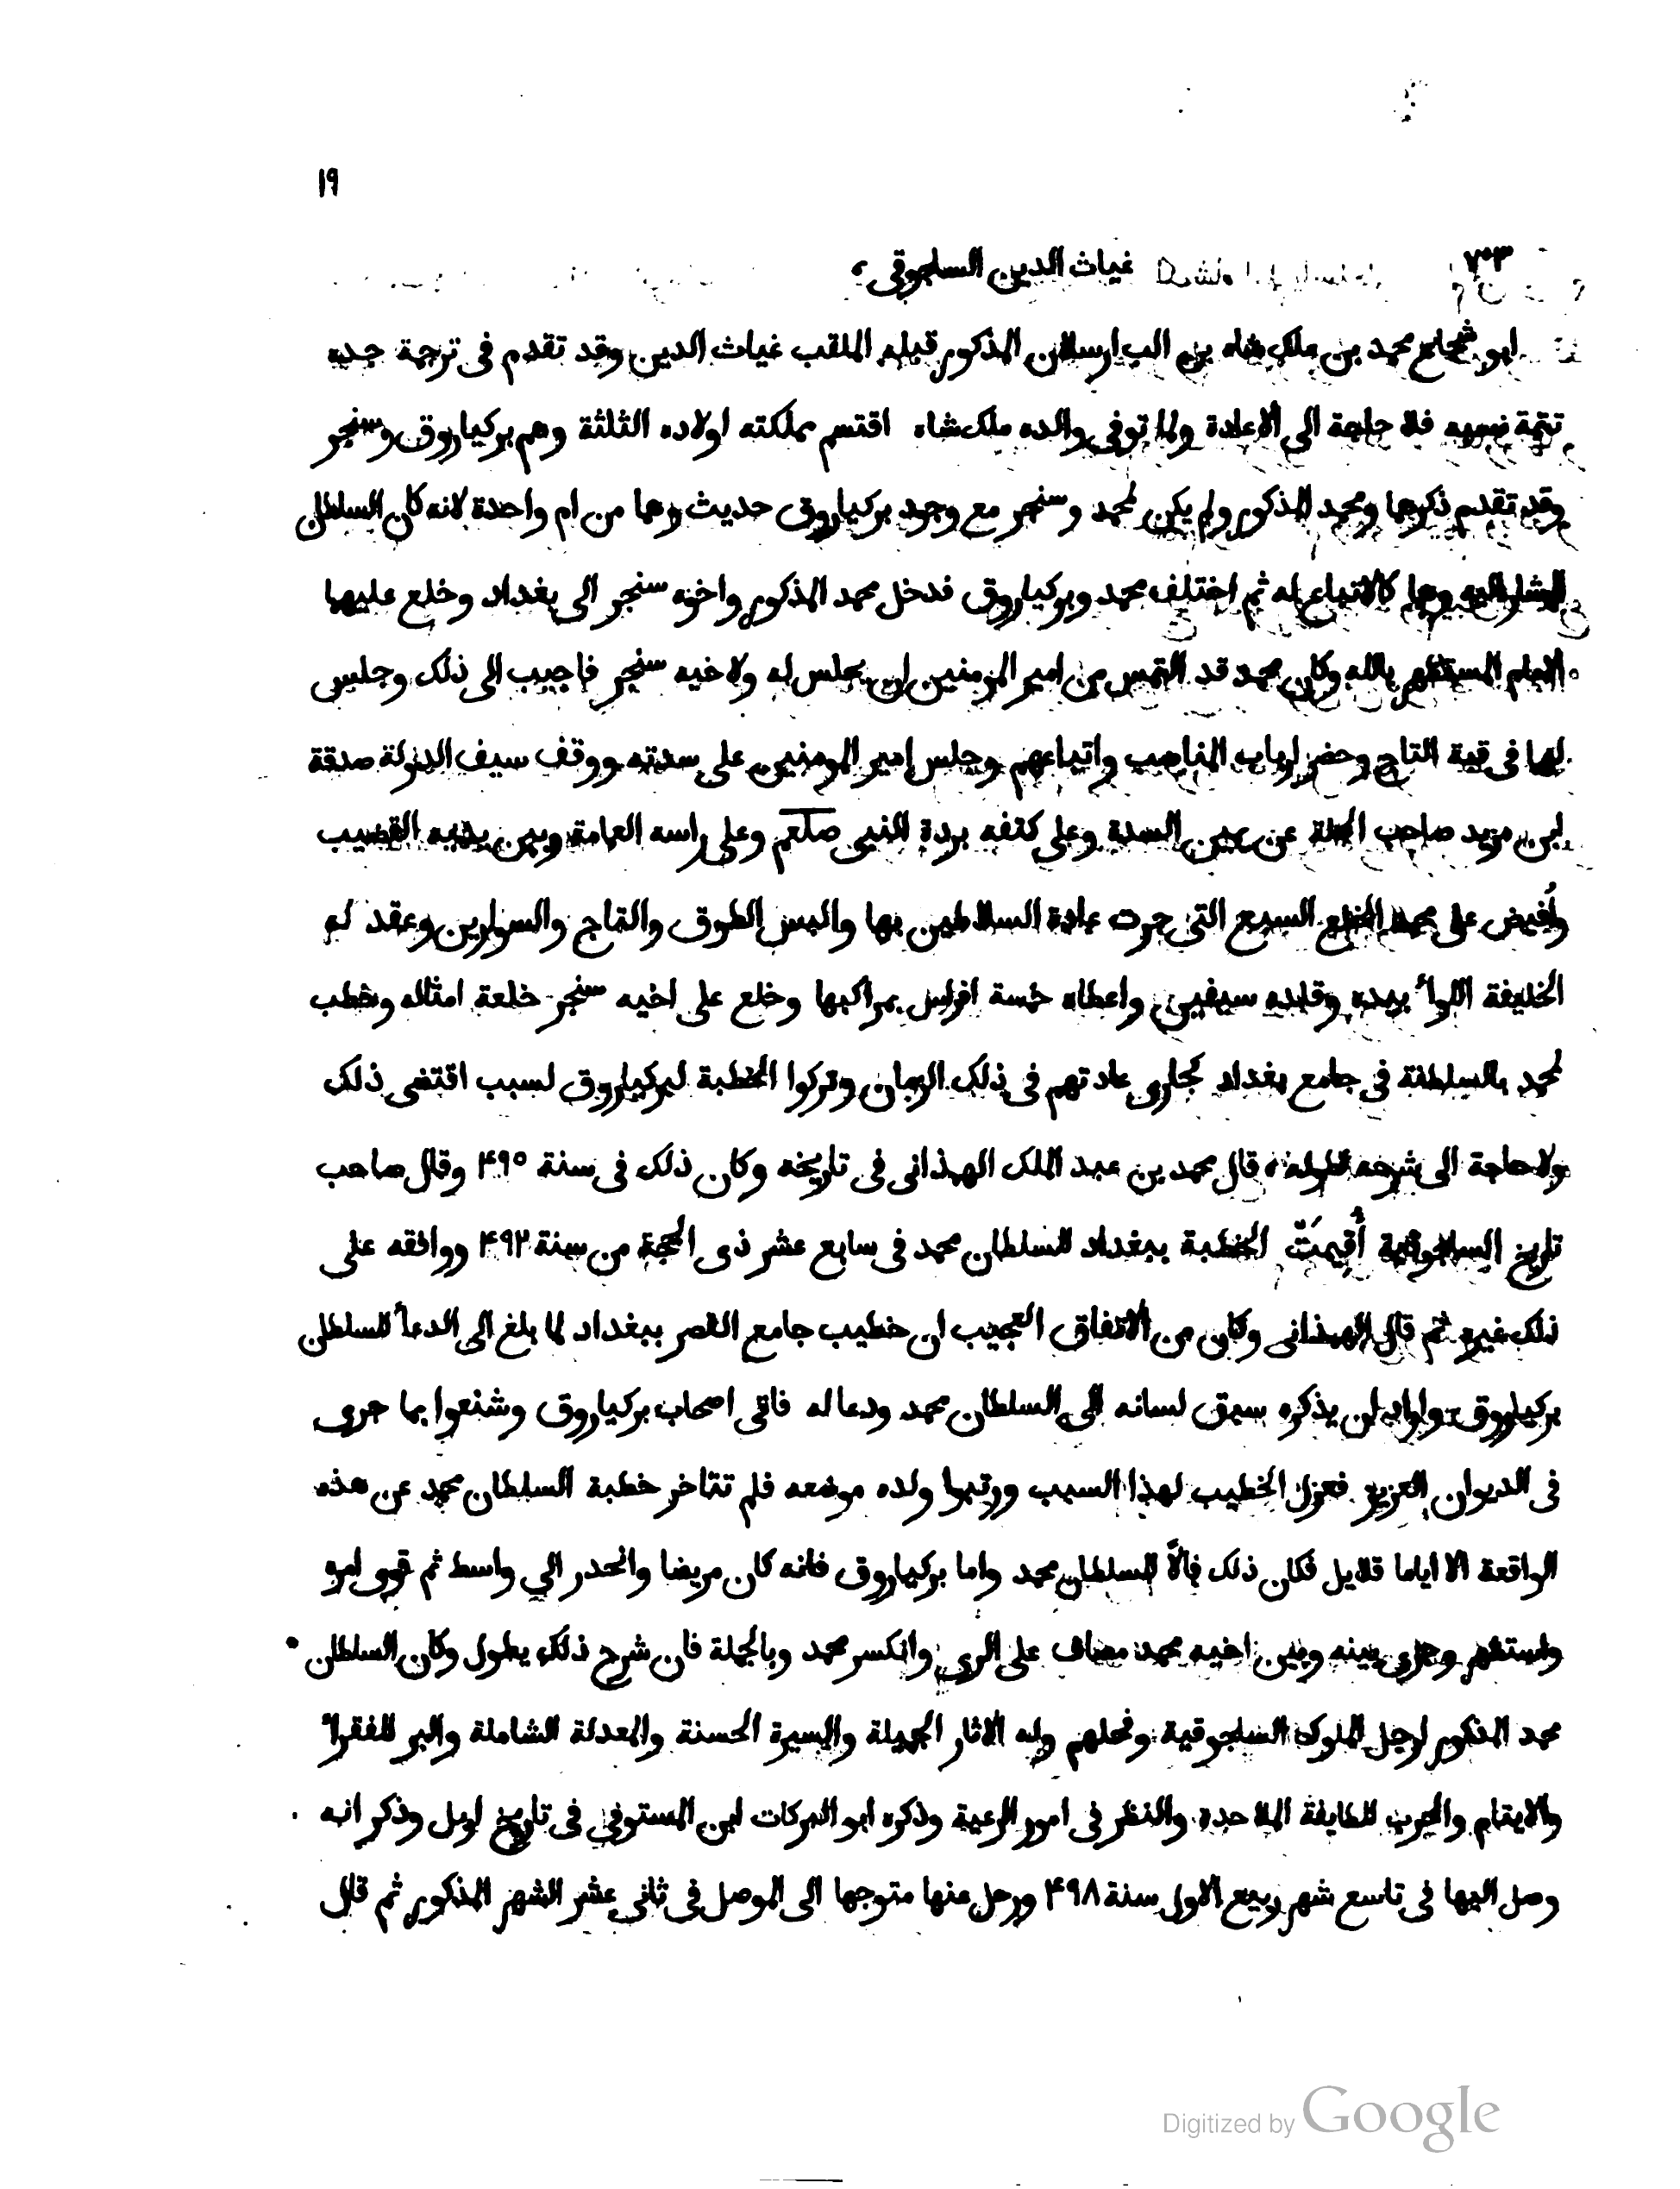 ١٩
٧٠٣ غياث الدين السلجوقى،
ابو شجاع محمد بن ملك شاه بن الب ارسلان المذكور قبله الملقب غياث الدين وقد تقدم فى ترجمة جده
تتمة نسبه فلا حاجة الى الاعادة ولما توفى والده ملك شاه اقتسم مملكته اولاده الثلثة وهم بركياروق وسنجر
وقد تقدم ذكرها ومحمد المذكور ولم يكن لمحمد وسنجر مع وجود بركياروق حديث وهما من ام واحدة لانه كان السلطان
المشار اليه وهما كالاتباع له ثم اختلف محمد وبركياروق فدخل محمد المذكور واخوه سنجر الى بغداد وخلع عليهما
الامام المستظهر بالله وكان محمد قد التمس من امير المومنين ان يجلس له ولاخيه سنجر فاجيب الى ذلك وجلس
لهما فى قبة التاج وحضر ارباب المناصب واتباعهم وجلس امير المومنين على سدته ووقف سيف الدولة صدقة
ابن مزيد صاحب الحلة عن يمين السدة وعلى كتفه بردة النبى صلعم وعلى راسه العمامة وبين يديه القضيب
وأُفيض على محمد الخلع السبع التى جرت عادة السلاطين بها والبس الطوق والتاج والسوارين وعقد له
الخليفة اللوأ بيده وقلده سيفين واعطاه خمسة افراس بمراكبها وخلع على اخيه سنجر خلعة امثاله وخطب
لمحمد بالسلطنة فى جامع بغداد كجارى عادتهم فى ذلك الزمان وتركوا الخطبة لبركياروق لسبب اقتضى ذلك
ولا حاجة الى شرحه لطوله، قال محمد بن عبد الملك الهمذانى فى تاريخه وكان ذلك فى سنة ۴٩٥ وقال صاحب
تاريخ السلجوقية أُقِيمَتْ الخطبة ببغداد للسلطان محمد فى سابع عشر ذى الحجة من سنة ۴٩٢ ووافقه على
ذلك غيره ثم قال الهمذانى وكان من الاتفاق العجيب ان خطيب جامع القصر ببغداد لما بلغ الى الدعأ للسلطان
بركياروق واراد ان يذكره سبق لسانه الى السلطان محمد ودعا له فاتى اصحاب بركياروق وشنعوا بما جرى
فى الديوان العزيز فعزل الخطيب لهذا السبب ورتبوا ولده موضعه فلم تتاخر خطبة السلطان محمد عن هذه
الواقعة الا اياما قلايل فكان ذلك فالًا للسلطان محمد واما بركياروق فانه كان مريضا وانحدر الى واسط ثم قوى امره
واستظهر وجرى بينه وبين اخيه محمد مصاف على الرى وانكسر محمد وبالجملة فان شرح ذلك يطول وكان السلطان
محمد المذكور رجل الملوك السلجوقية وفحلهم وله الاثار الجميلة والسيرة الحسنة والمعدلة الشاملة والبر للفقرأ
والايتام والحرب للطايفة الملاحدة والنظر فى امور الرعية وذكره ابو البركات ابن المستوفى فى تاريخ اربل وذكر انه
وصل اليها فى تاسع شهر ربيع الاول سنة ۴٩٨ ورحل عنها متوجها الى الموصل فى ثانى عشر الشهر المذكور ثم قال
Digitized by Google